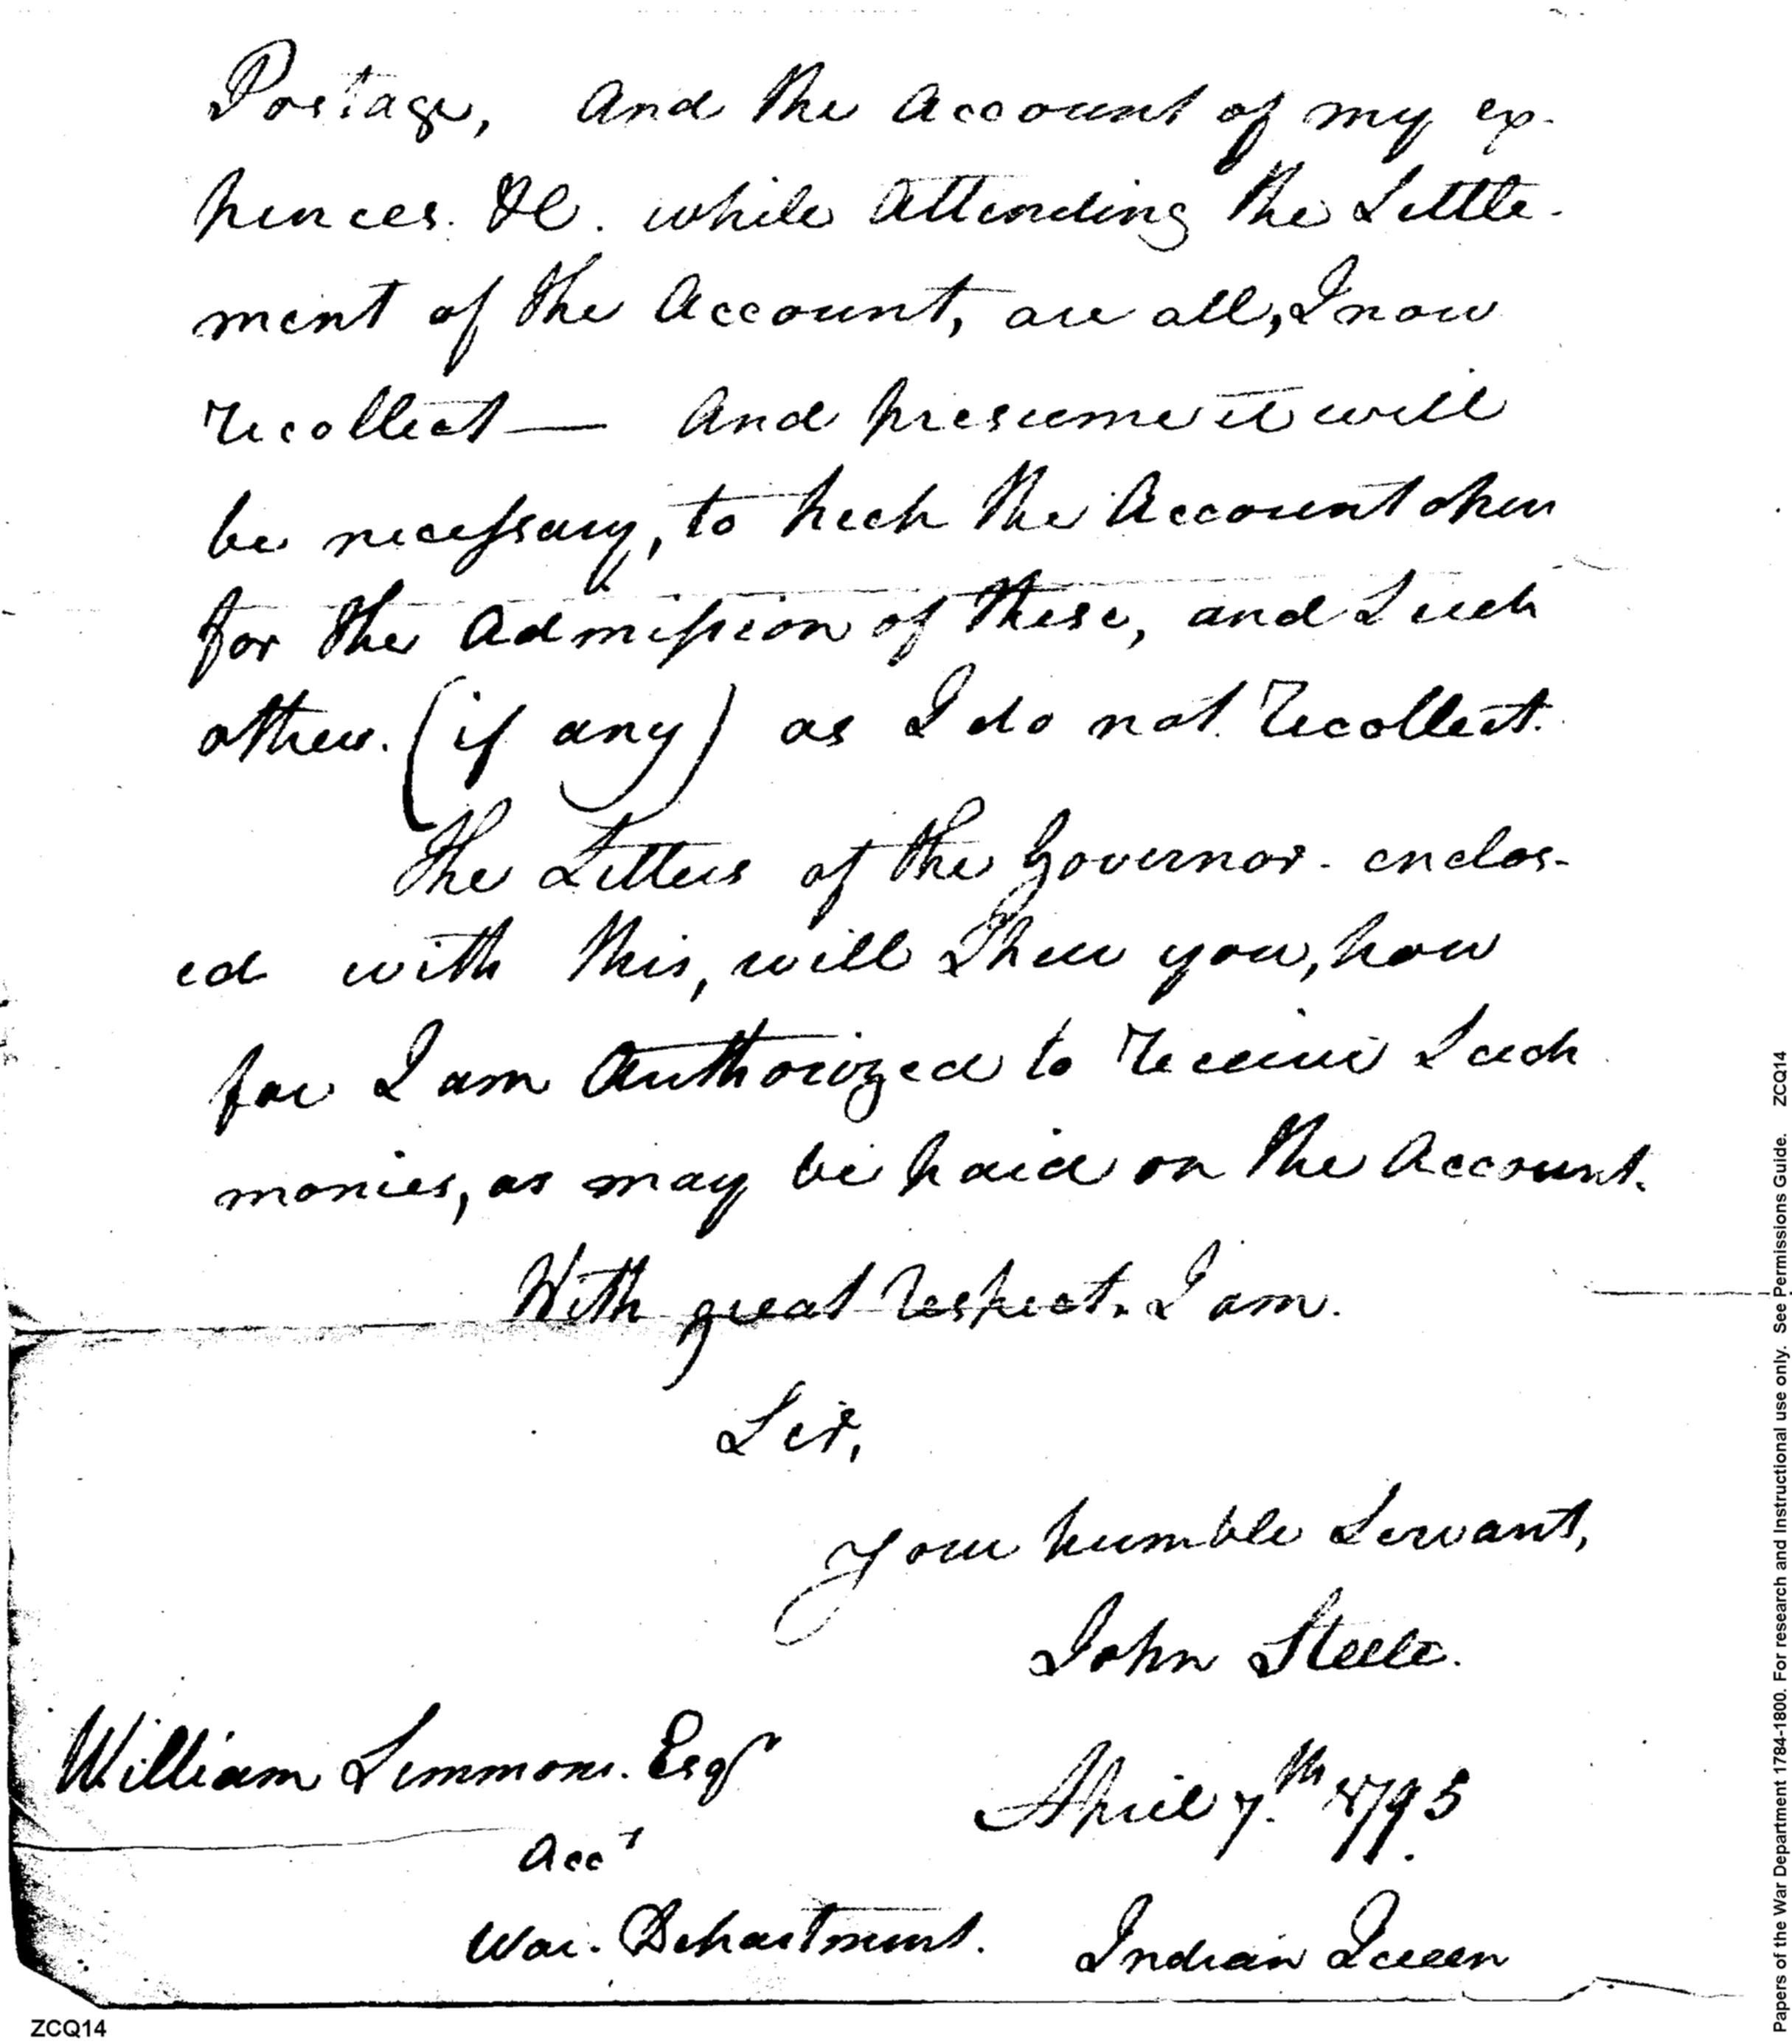 Postage, And the Account of my ex-
pences. &c. while Attending the Settle-
ment of the Account, are all, I now
recollect — And presume it will
be necessary, to keep the Account open
for the Admission of these, and Such
others. (if any) as I do not recollect.
The Letters of the Governor - enclos-
ed with this, will Shew you, how
far I am Authorized to receive Such
monies, as may be paid on the Account.
With great respect. I am.
Sir,
Your humble Servant,
John Steele.
William Simmons. Esqr
April 7.th 1795.
Acct
War. Department.
Indian Queen
ZCQ14
Papers of the War Department 1784-1800. For research and Instructional use only. See Permissions Guide. ZCQ14